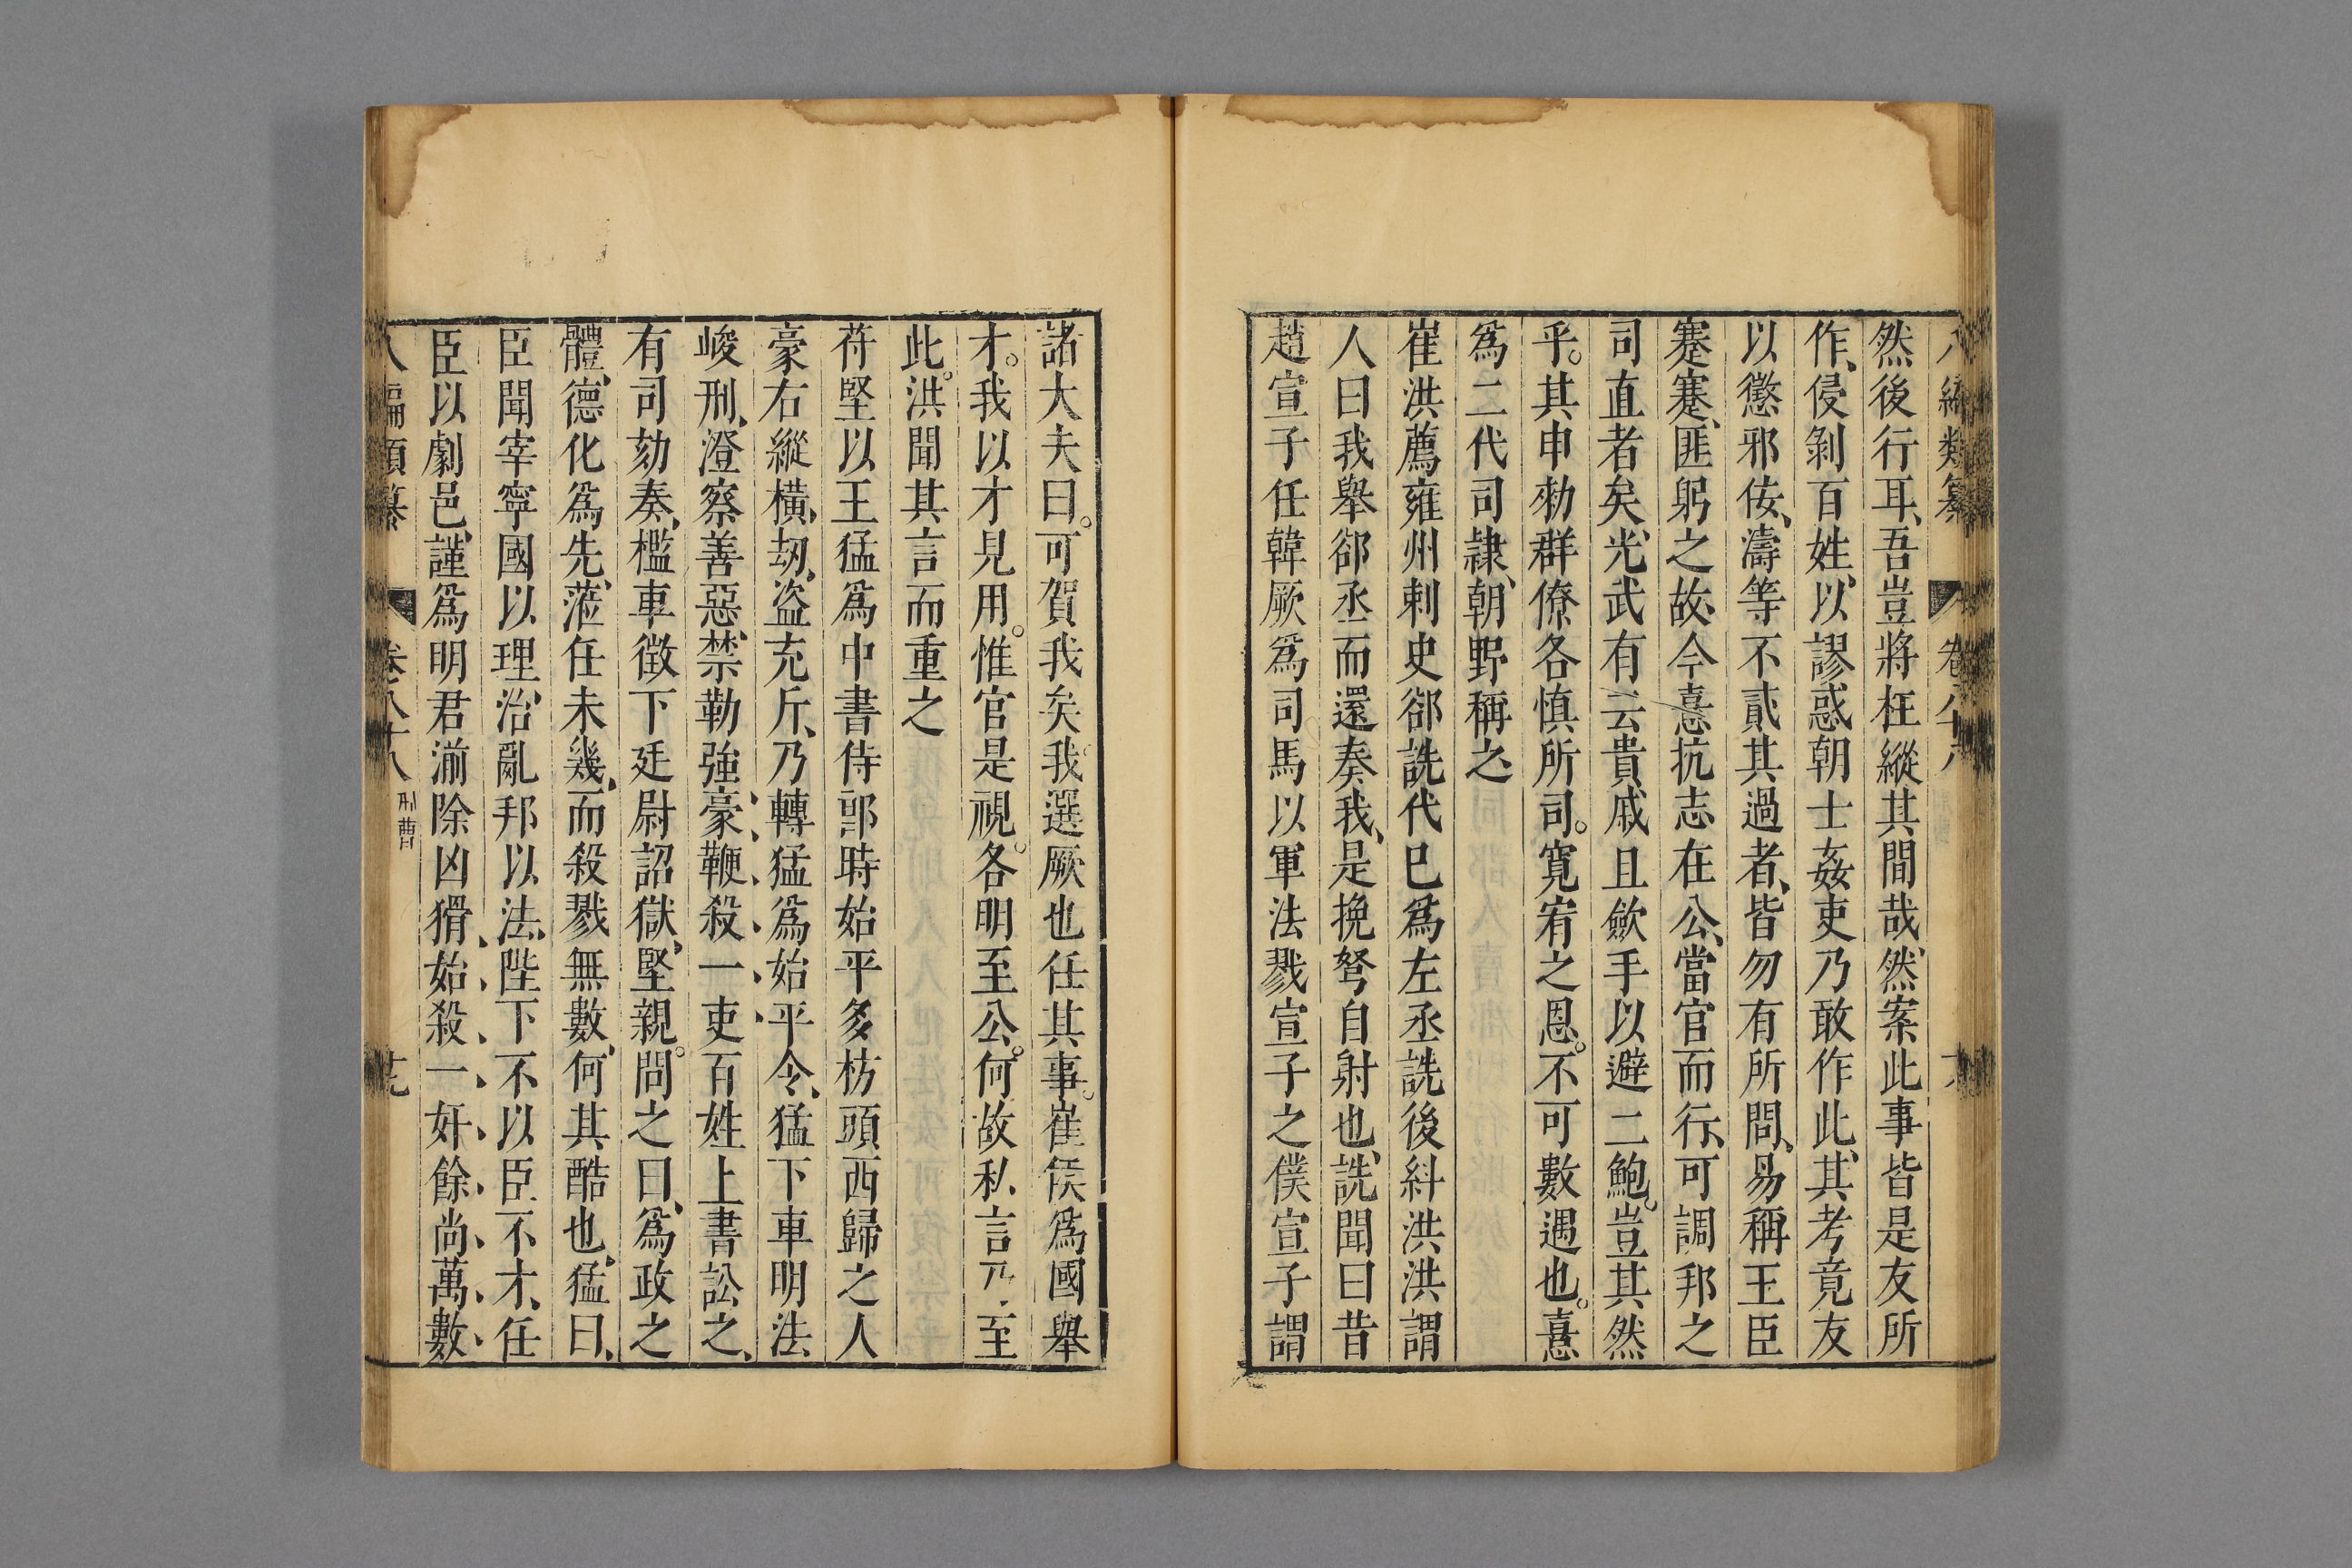 八編類纂 卷八十八
然後行耳、吾豈將枉縱其間哉、然案此事皆是友所
作、侵剝百姓、以謬惑朝士姦吏乃敢作此、其考竟友
以懲邪侫、濤等不貳其過者、皆勿有所問、易稱王臣
蹇蹇、匪躬之故、今憙抗志在公、當官而行、可謂邦之
司直者矣、光武有云貴戚且歛手以避二鮑。豈其然
乎。其申勑群僚各慎所司。寬宥之恩。不可數遇也。憙
爲二代司隷、朝野稱之
崔洪薦雍州刺史郤詵代巳爲左丞詵後糾洪洪謂
人曰我舉郤丞而還奏我、是挽弩自射也、詵聞曰昔
趙宣子任韓厥爲司馬以軍法戮宣子之僕宣子謂
諸大夫曰。可賀我矣我選厥也任其事。崔侯爲國舉
才。我以才見用。惟官是視。各明至公。何故私言乃至
此。洪聞其言而重之
苻堅以王猛爲中書侍郎時始平多枋頭西歸之人
豪右縱橫、劫盗充斥、乃轉猛爲始平令、猛下車明法
峻刑、澄察善惡、禁勒強豪、鞭殺一吏百姓上書訟之、
有司劾奏、檻車徵下廷尉詔獄、堅親。問之曰、爲政之
體、德化爲先、蒞任未幾、而殺戮無數、何其酷也、猛曰、
臣聞宰寧國以理、治亂邦以法、陛下不以臣不才、任
臣以劇邑、謹爲明君湔除凶猾、始殺一奸、餘尚萬數
八編類纂 卷八十八 刑曹